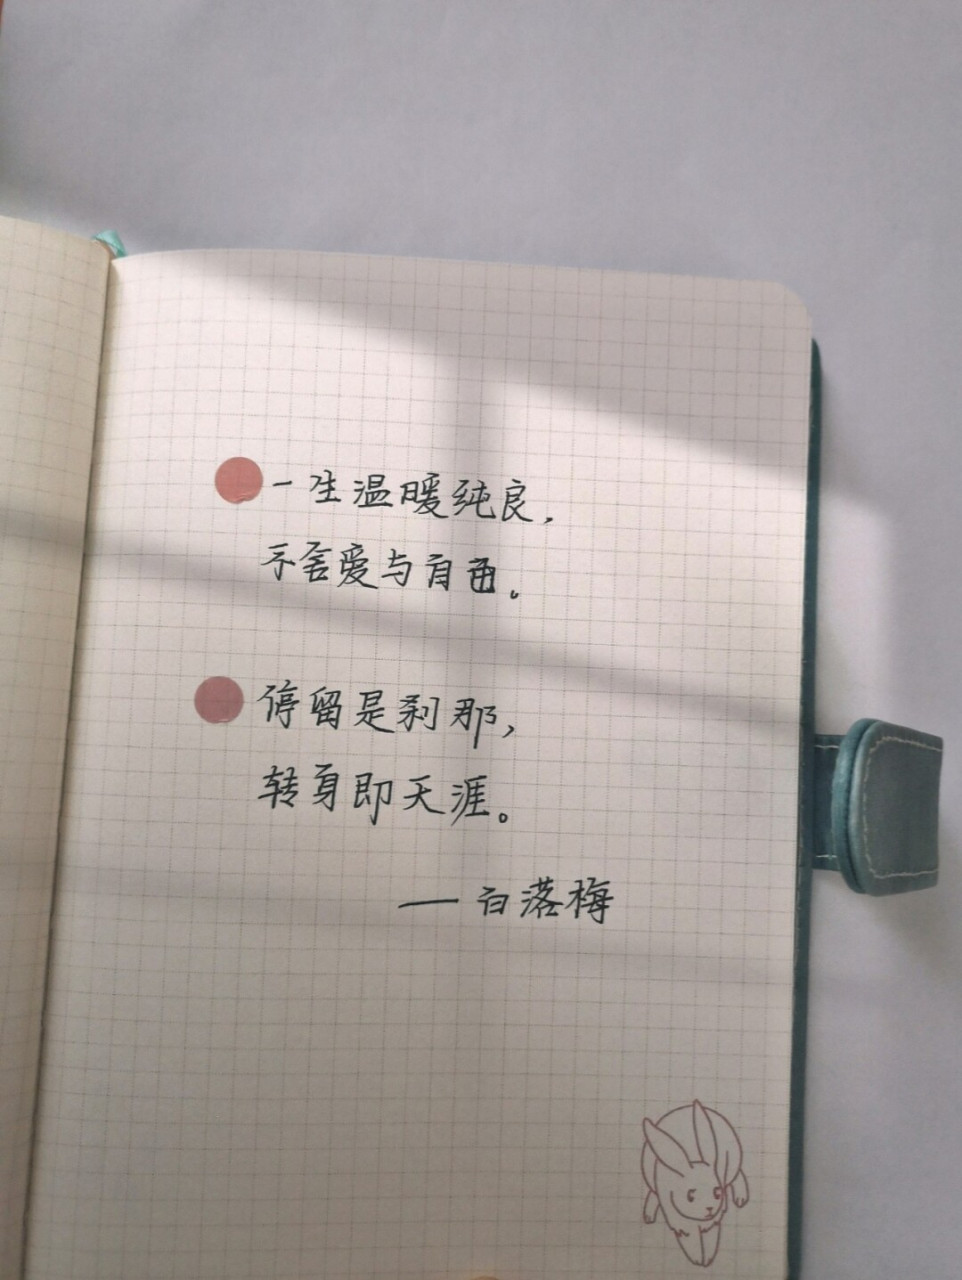 一生温暖纯良，
不舍爱与自由。
停留是刹那，
转身即天涯。
—白落梅